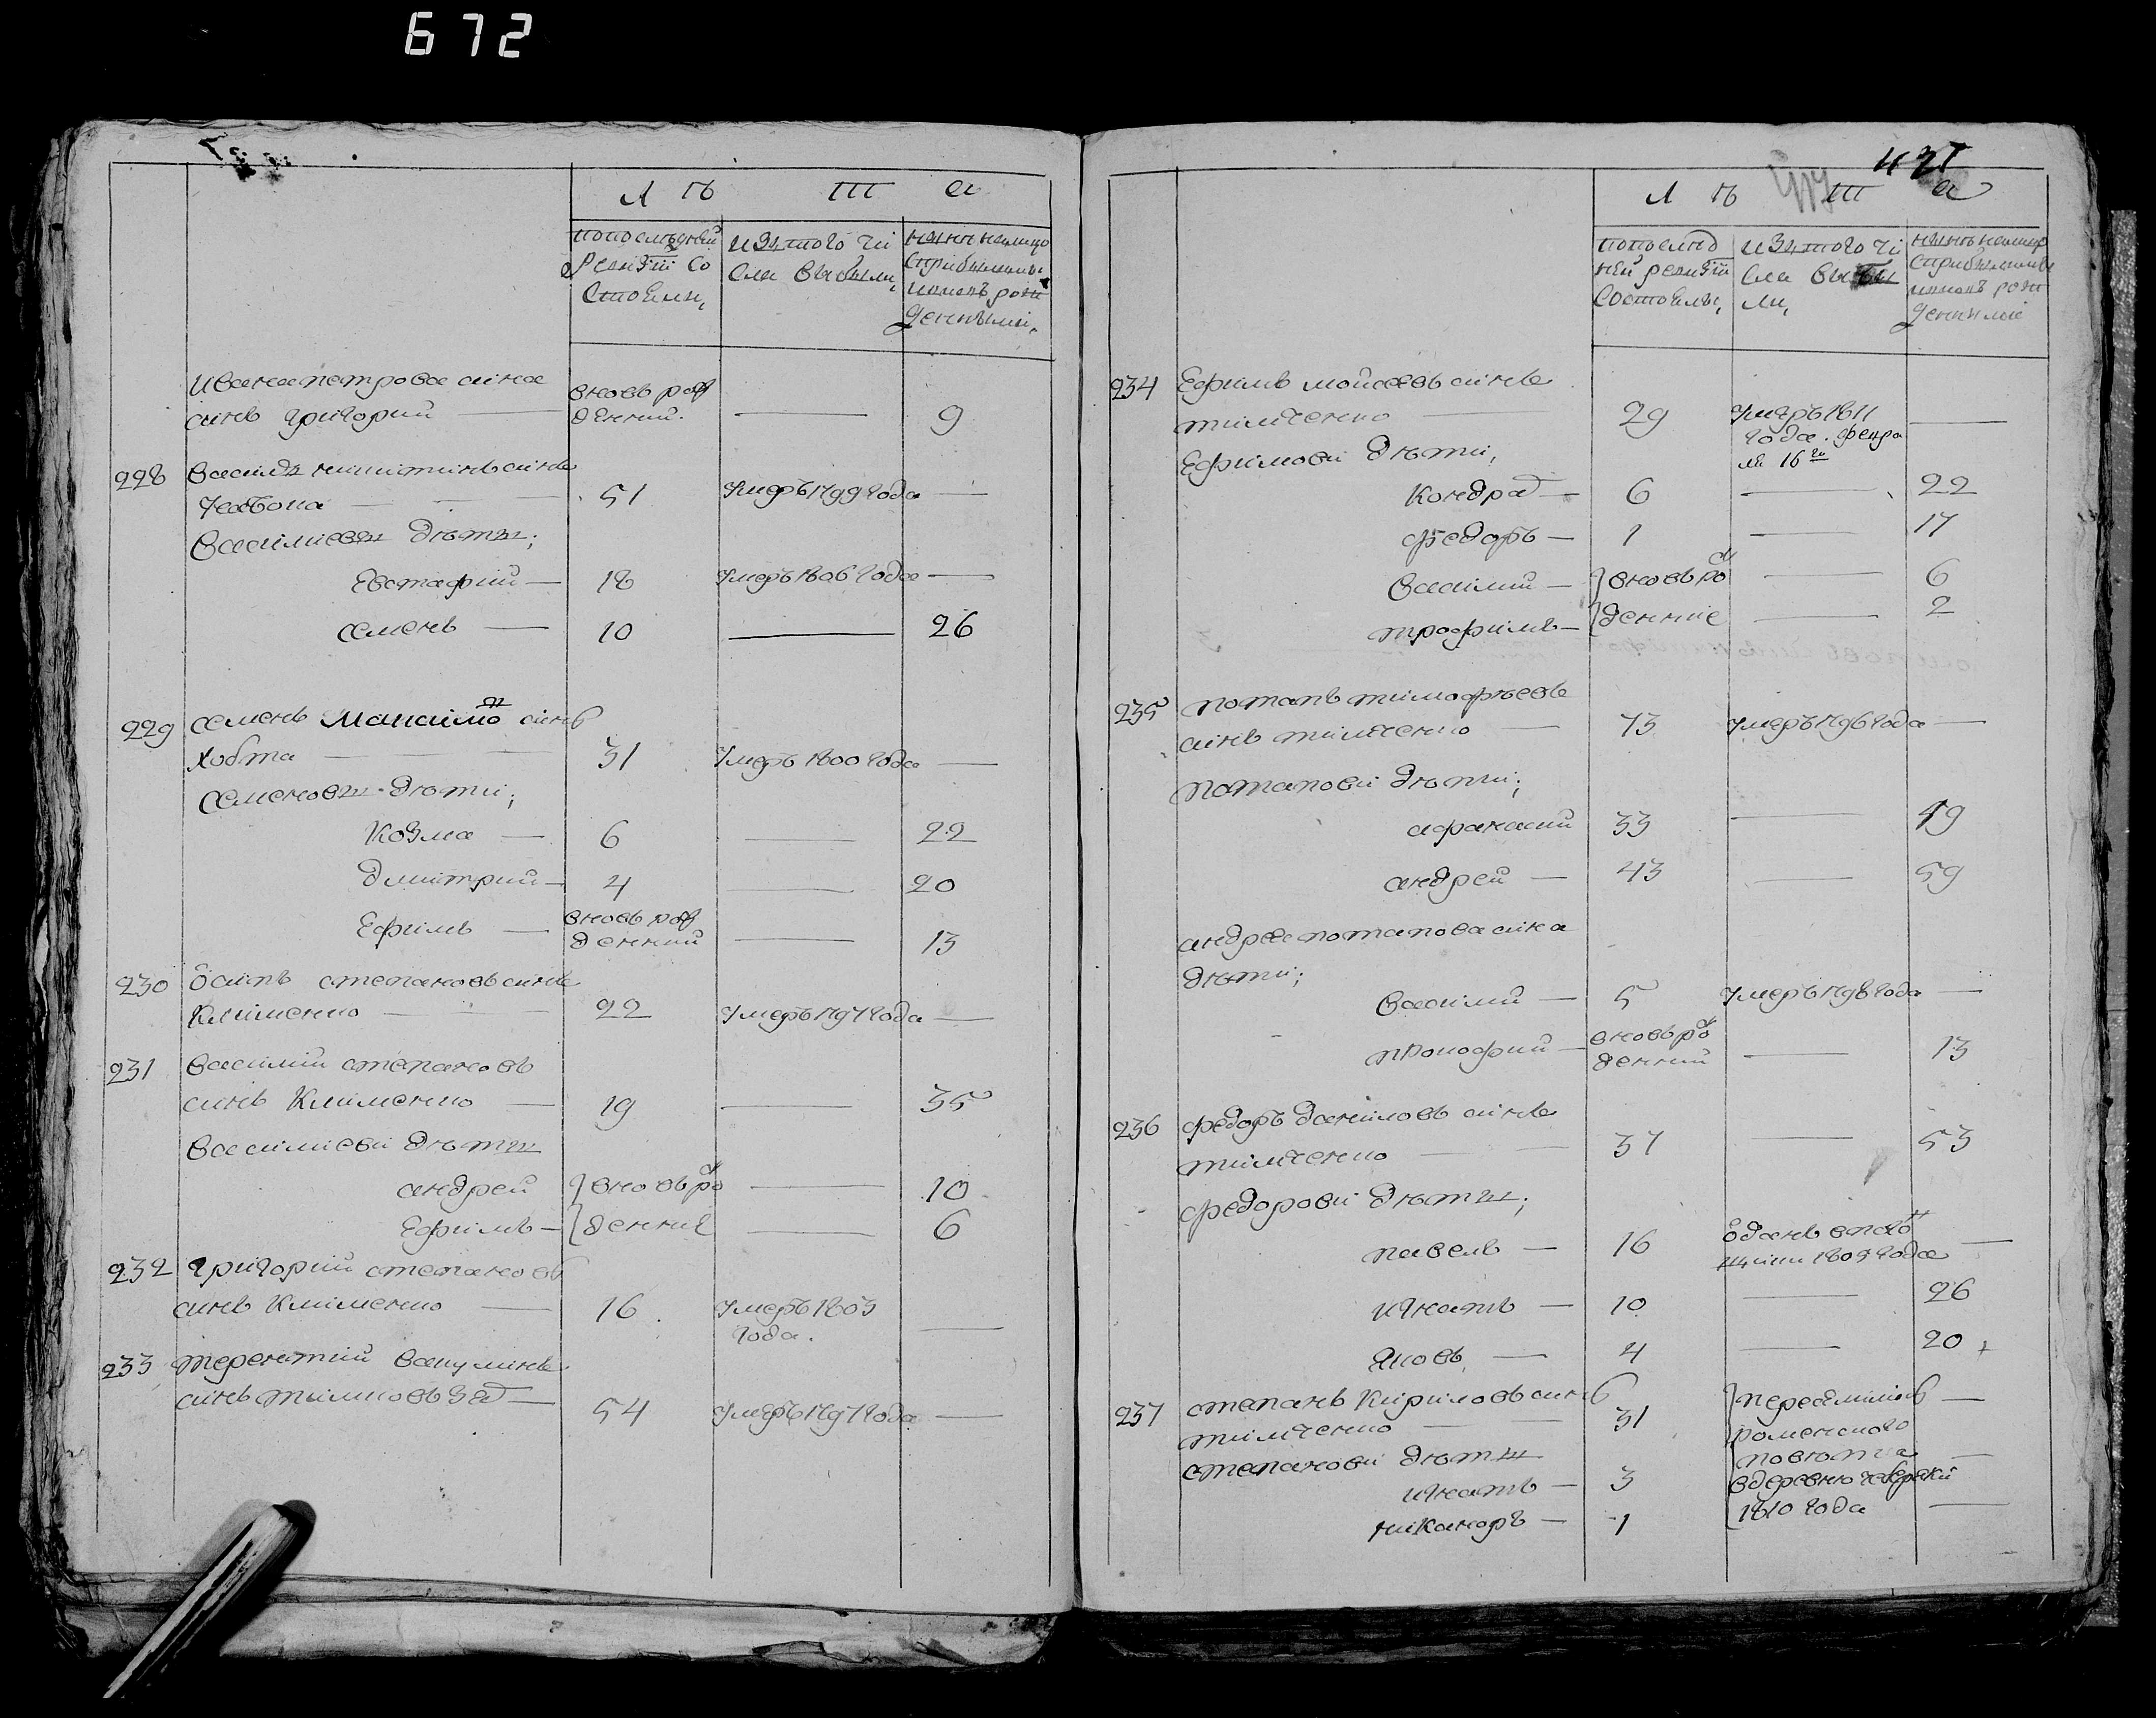 672
Л Ѣ Т А
попоследней
Ревизіи Со
Стоѣли,
изтого чи
сла выбыли,
нынѣ налицо
Сприбылыми
иновь рож
денными,
Ивана петрова сина
синъ григорий
вновь рож
денний
9
228
Василъ никитинъ синъ
51
Умеръ 1799 года
Василиеви дѣти;
Евстафий
18
Умеръ 1806 года
Семенъ
10
26
229
Семенъ Максимов синъ
Хобта
31
Умеръ 1800 года
Семенови дѣти;
Козма
6
22
Дмитрий
4
20
Ефимъ
вновь рож
денний
13
230
Осипъ степановъ синъ
Клименко
22
Умеръ 1797 года
231
Василий степановъ
синъ Клименко
19
35
Василиеви дѣти
андрей
вновь рож
10
Ефимъ
денние
6
232
Григорий степановъ
синъ Клименко
16
Умеръ 1803
года.
233
терентий вакулинъ
синъ
54
Умеръ 1797 года
431
Л Ѣ Т А
попослед
ней ревизіи
Состоѣлы,
изтого чи
сла выбы
ли,
нынѣ налицо
Сприбылыми
иновь рож
денними
234
Ефимъ мойсеевъ синъ
тимченко
29
Умеръ 1811
года. февра
ля 16го
Ефимови дѣти,
Кондрат
6
22
федоръ
1
17
Василий
вновь рож
6
трофимъ
денние
2
235
потапъ тимофѣевъ
синъ тимченко
73
Умеръ 1796 года
потапови дѣти;
афанасий
33
49
андрей
43
59
андрея потапова сина
дѣти;
Василий
5
Умеръ 1798 года
прокофий
вновь рож
денний
13
236
федоръ даниловъ синъ
тимченко
37
53
федорови дѣти;
павелъ
16
1809 года
игнатъ
10
26
Яковъ
4
20
237
степанъ Кириловъ синъ
тимченко
31
роменского
повѣта
степанови дѣти
игнатъ
3
вдеревню
никаноръ
1
1810 года